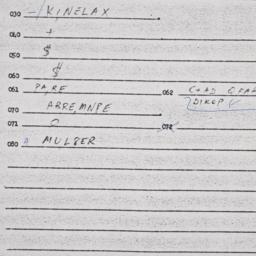 030 -/KINELAX
040 +
050 $
060 $
061 PA,RE 062
DIKEP
070 ABRE,MNPE
071 O 072
080 A MULBER